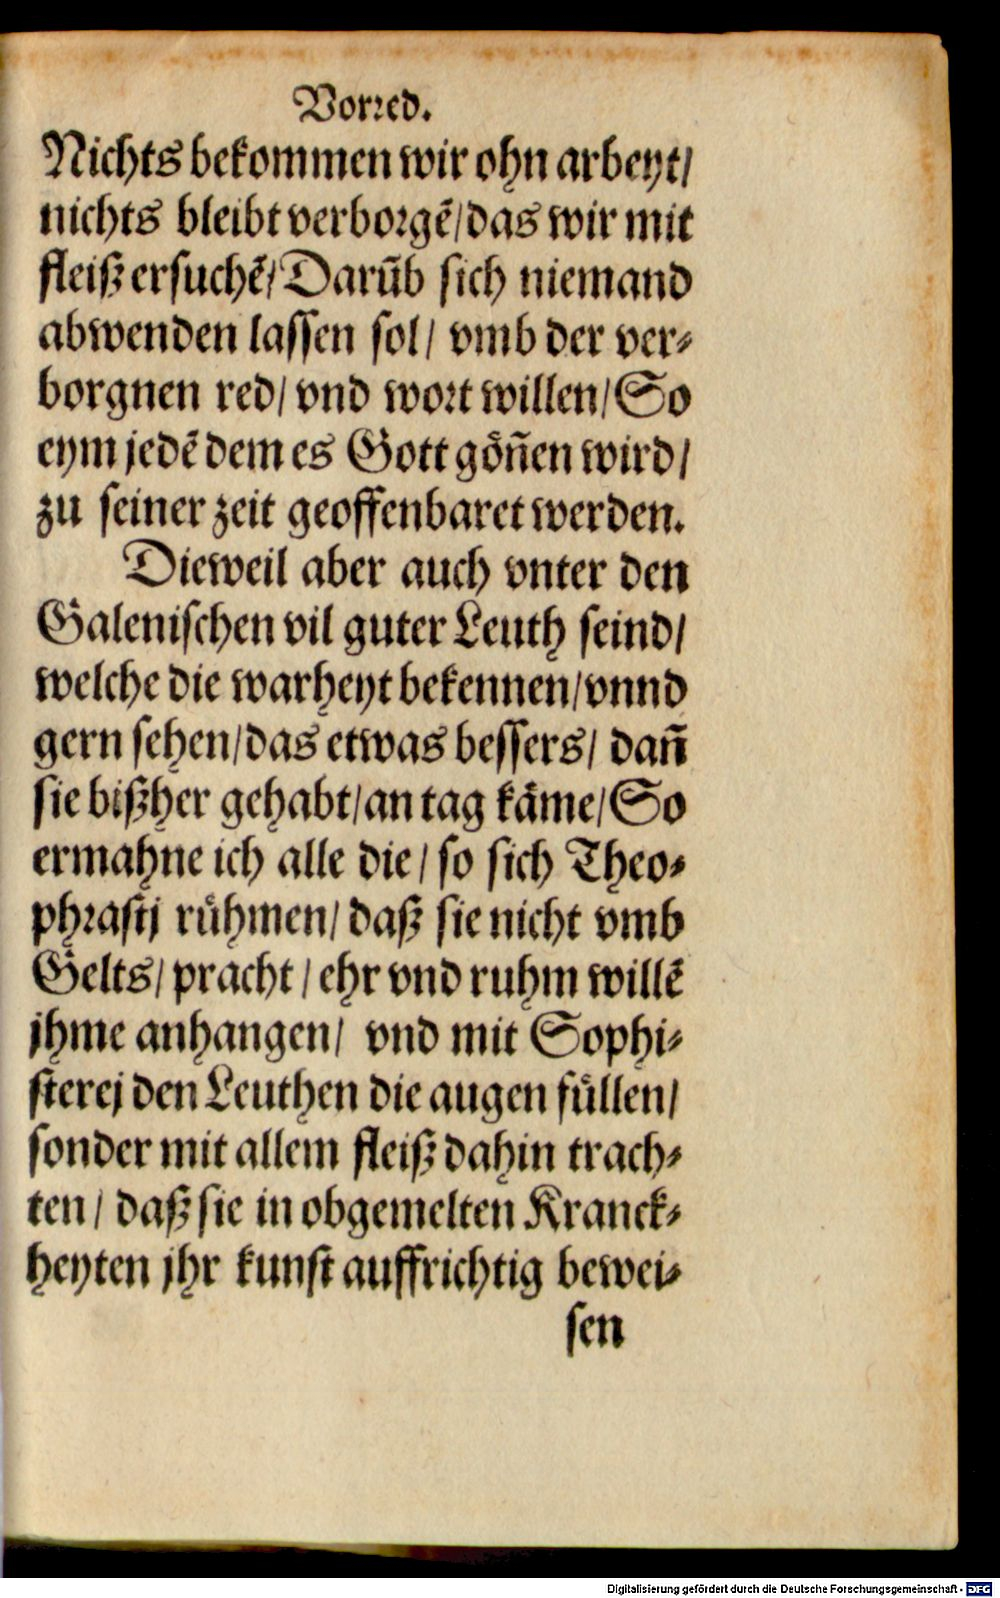 Vorred.
Nichts bekommen wir ohn arbeyt/
nichts bleibt verborgẽ/das wir mit
fleiß ersuchẽ/Darũb sich niemand
abwenden lassen sol/ vmb der ver-
borgnen red/ vnd wort willen/So
eym jedẽ dem es Gott göñen wird/
zu seiner zeit geoffenbaret werden.
Dieweil aber auch vnter den
Galenischen vil guter Leuth seind/
welche die warheyt bekennen/vnnd
gern sehen/das etwas bessers/ dañ
sie bißher gehabt/an tag käme/So
ermahne ich alle die/ so sich Theo-
phrastj rühmen/ daß sie nicht vmb
Gelts/ pracht/ ehr vnd ruhm willẽ
jhme anhangen/ vnd mit Sophi-
sterej den Leuthen die augen füllen/
sonder mit allem fleiß dahin trach-
ten/ daß sie in obgemelten Kranck-
heyten jhr kunst auffrichtig bewei-
sen
Digitalisierung gefördert durch die Deutsche Forschungsgemeinschaft - DFG